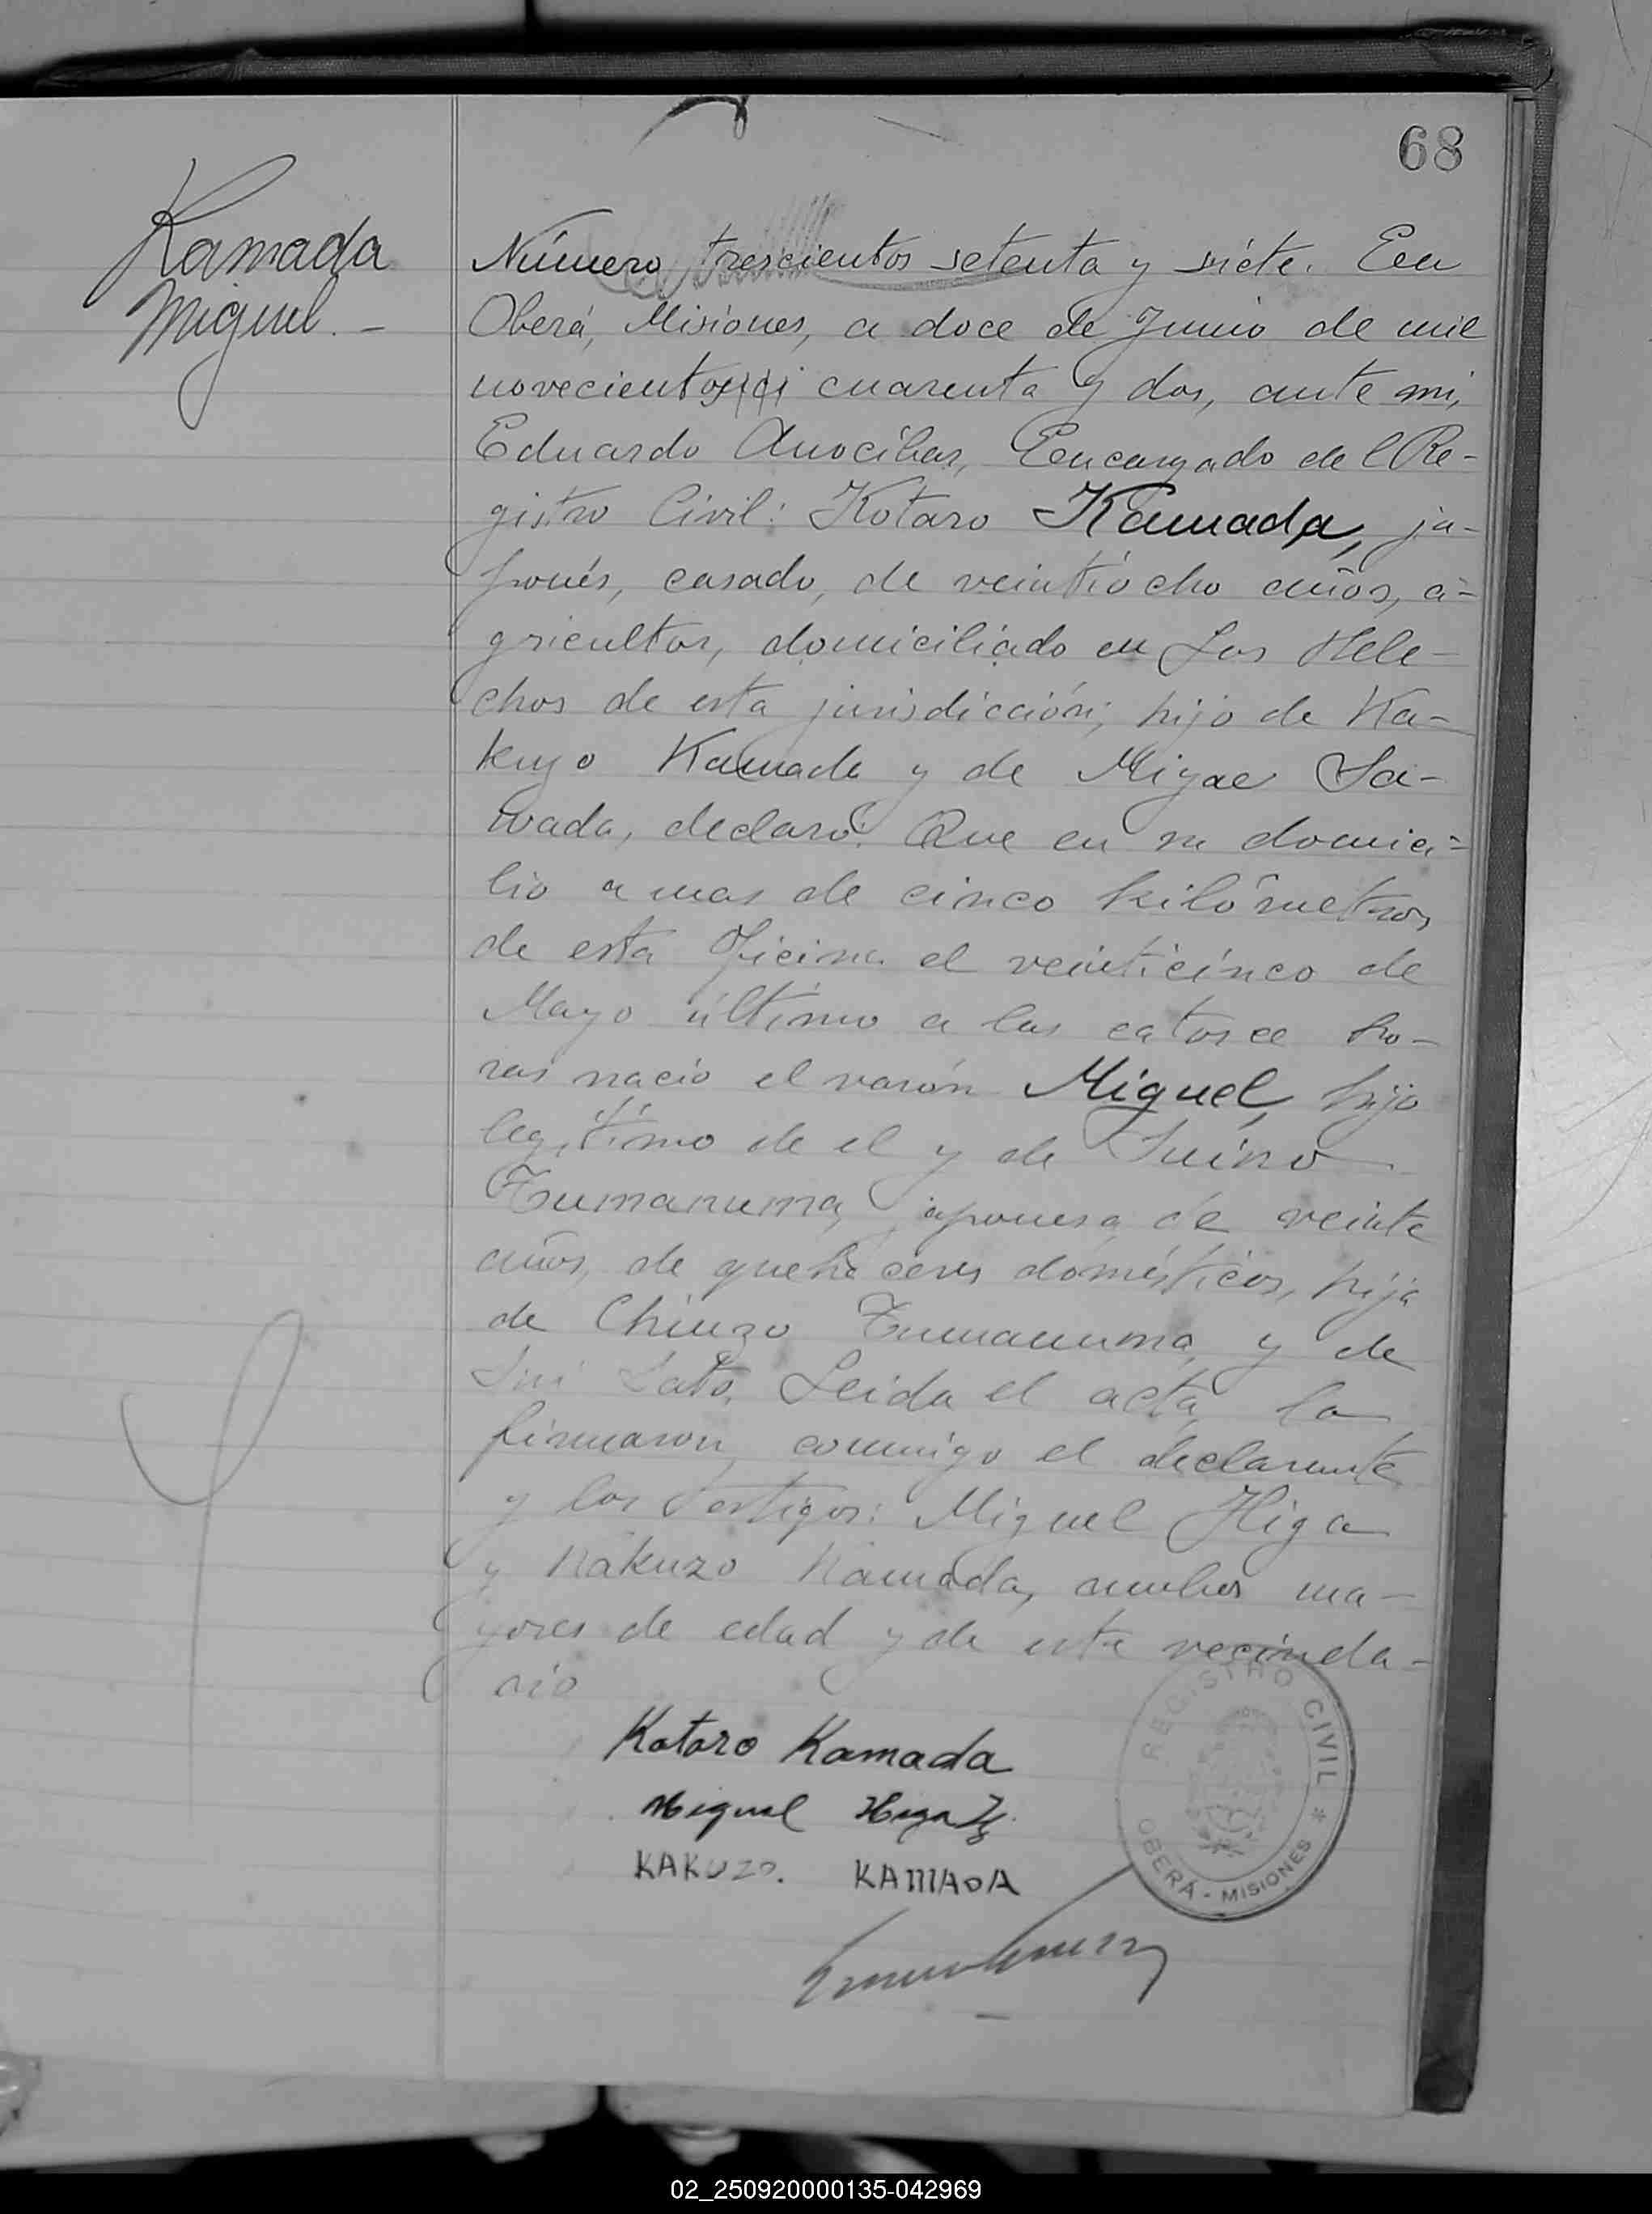 68
Kamada
Miguel. -
Número trescientos setenta y siete. En
Oberá, Misiones, a doce de Junio de mil
novecientos cuarenta y dos, ante mi,
Eduardo Encargado del Re-
gistro Civil: Kotaro Kamada, ja-
ponés, casado, de veintiocho años, a-
gricultor, domiciliado en Los Hele-
chos de esta jurisdicción; hijo de Ka-
kuzo Kamada y de Miyae Sa-
wada, declaró: Que en su domici-
lio a mas de cinco kilómetros
de esta Oficina el veinticinco de
Mayo último a las catorce ho-
ras nació el varón Miguel, hijo
legítimo de el y de Sueno
Tumanuma, japonesa de veinte
años, de quehaceres domésticos, hija
de Chinzo Tumanuma, y de
Sato. Leida el acta, la
firmaron conmigo el declarante
y los testigos: Miguel Higa
y Kakuzo Kamada, ambos ma-
yores de edad y de este vecinda-
rio
Kotaro Kamada
Miguel Higa
KAKUZO. KAMADA
REGISTRO CIVIL *
OBERÁ - MISIONES
02_250920000135-042969